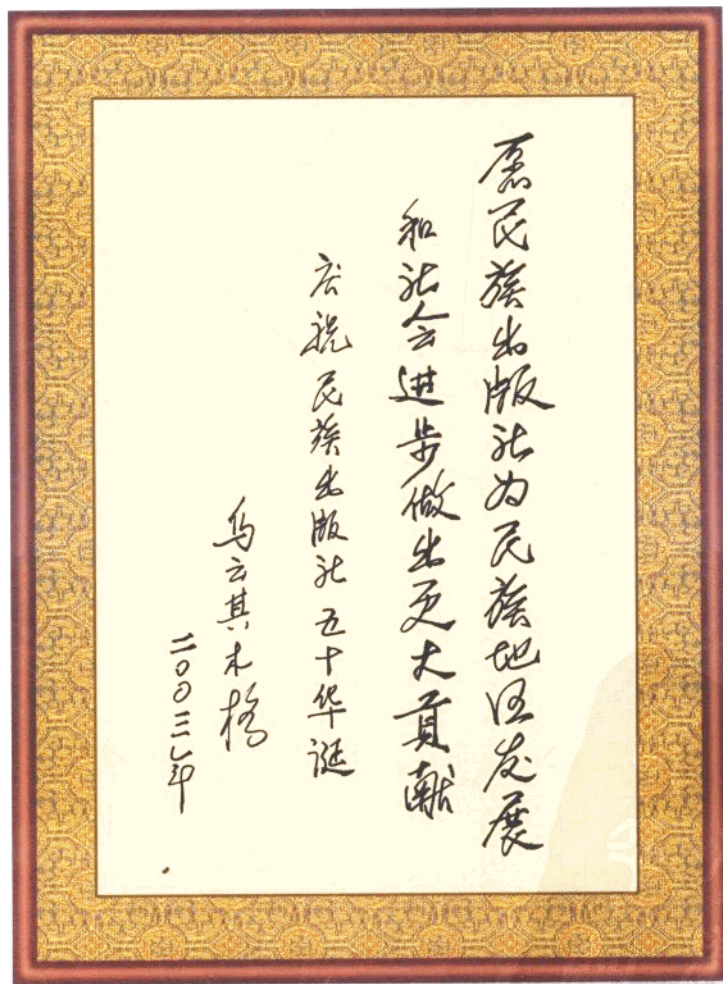 愿民族出版社为民族地区发展
和社会进步做出更大贡献
庆祝民族出版社五十华诞
乌云其木格
二〇〇三年